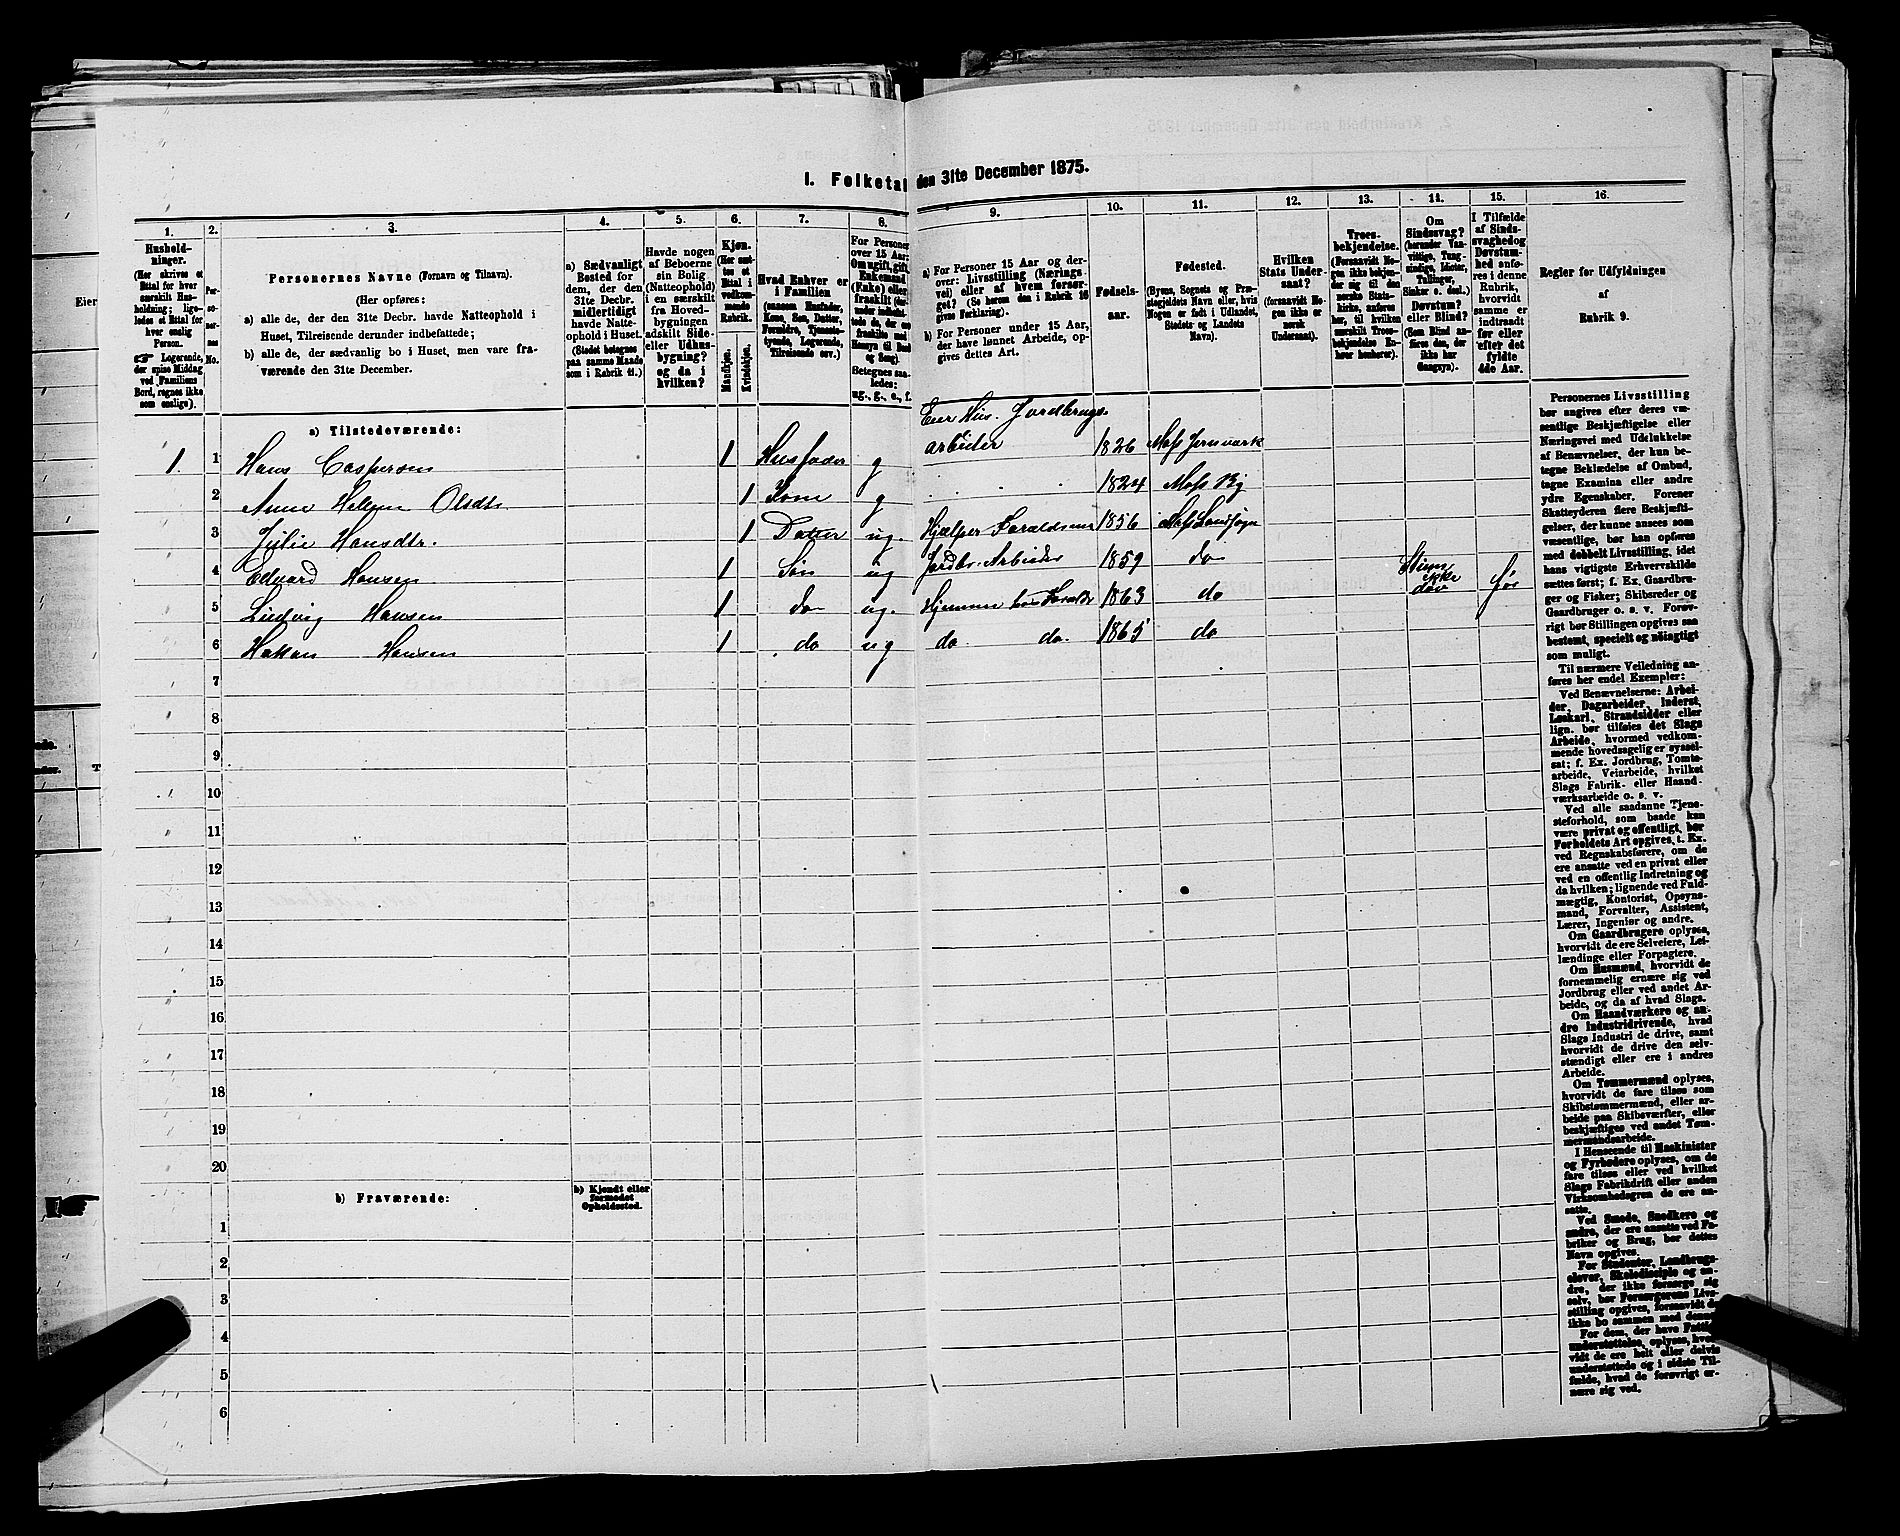 I. Folketal den 31te December 1875.
1. 2. 3. 4. 5. 6. 7. 8. 9. 10. 11. 12. 13. 14. 15. 16.
Hushold-
ninger.
(Her skrives et
Ettal for hver
særskilt Hus-
holdning; lige-
ledes et Ettal for
hver enslig
Person.
☞ Logerende,
der spise Middag
ved Familiens
Bord, regnes ikke
som enslige).
Per-
so-
ner-
nes
No.
Personernes Navne (Fornavn og Tilnavn).
(Her opføres:
a) alle de, der den 31te Decbr. havde Natteophold i
Huset, Tilreisende derunder indbefattede;
b) alle de, der sædvanlig bo i Huset, men vare fra-
værende den 31te December.
a) Sædvanligt
Bosted for
dem, der den
31te Decbr.
midlertidigt
havde Natte-
ophold i Huset.
(Stedet betegnes
paa samme Maade
som i Rubrik 11.)
Havde nogen
af Beboerne
sin Bolig
(Natteophold)
i en særskilt
fra Hoved-
bygningen
adskilt Side-
eller Udhus-
bygning?
og da i
hvilken?
Kjøn.
(Her sæt-
tes et
Ettal i
vedkom-
mende
Rubrik.
Mandkjøn.
Kvindekjøn.
Hvad Enhver er
i Familien
(saasom Husfader,
Kone, Søn, Datter,
Forældre, Tjeneste-
tyende, Logerende,
Tilreisende osv.)
For Personer
over 15 Aar:
Om ugift, gift,
Enkemand
(Enke) eller
fraskilt
Betegnes saa-
ledes:
ug., g., e., f.
a) For Personer 15 Aar og der-
over: Livsstilling (Nærings-
vei) eller af hvem forsør-
get? (Se herom den i Rubrik 16
givne Forklaring).
b) For Personer under 15 Aar,
der have lønnet Arbeide, op-
gives dettes Art.
Fødsels-
aar.
Fødested.
(Byens, Sognets og Præ-
stegjeldets Navn eller, hvis
Nogen er født i Udlandet,
Stedets og Landets
Navn).
Hvilken
Stats Under-
saat?
(forsaavidt No-
gen ikke er
norsk
Undersaat).
Troes-
bekjendelse.
(Forsaavidt No-
gen ikke bekjen-
der sig til den
norske Stats-
kirke, anføres
her, til hvilken
særskilt Troes-
bekjendelse En-
hver henhører).
Om
Sindssvag?
(herunder Van-
vittige, Tung-
sindige, Idioter,
Tullinger,
Sinker o. desl.)
Døvstum?
eller Blind?
(Som Blind an-
føres den, der
ikke har
Gangsyn).
I Tilfælde
af Sinds-
svaghed og
Døvstum-
hed anfø-
res i denne
Rubrik,
hvorvidt
samme er
indtraadt
før eller
efter det
fyldte
4de Aar.
Regler for Udfyldningen
af
Rubrik 9.
a) Tilstedeværende:
Eier Hus. Jordbrugs-
1 1 Hans Caspersen 1 Husfader g arbeider 1826 Moss Jernværk
2 Anne Hellene Olsdtr 1 Kone g 1824 Moss By
3 Julie Hansdtr. 1 Datter ug. Hjælper Forældrene 1856 Moss Landsogn
4 Edvard Hansen 1 Søn ug Jordbr. Arbeider 1859 do
5 Ludvig Hansen 1 do ug. Hjemme hos Forældr 1863 do Stum ikke døv før
6 Hakan Hansen 1 do ug do do. 1865 do
7
8
9
10
11
12
13
14
15
16
17
18
19
20
b) Fraværende:
b) Kjendt eller
formodet
Opholdssted.
1
2
3
4
5
6
Personernes Livsstilling
bør angives efter deres væ-
sentlige Beskjæftigelse eller
Næringsvei med Udelukkelse
af Benævnelser, der kun be-
tegne Beklædelse af Ombud,
tagne Examina eller andre
ydre Egenskaber. Forener
Skatteyderen flere Beskjæfti-
gelser, der kunne ansees som
væsentlige, bør han opføres
med dobbelt Livsstilling, idet
hans vigtigste Erhvervskilde
sættes først; f. Ex. Gaardbru-
ger og Fisker; Skibsreder og
Gaardbruger o. s. v. Forøv-
rigt bør Stillingen opgives saa
bestemt, specielt og nøiagtigt
som muligt.
Til nærmere Veiledning an-
føres her endel Exempler:
Ved Benævnelserne: Arbei-
der, Dagarbeider, Inderst,
Løskarl, Strandsidder eller
lign. bør tilføies det Slags
Arbeide, hvormed vedkom-
mende hovedsagelig er syssel-
sat; f. Ex. Jordbrug, Tomte-
arbeide, Veiarbeide, hvilket
Slags Fabrik- eller Haand-
værksarbeide o. s. v.
Ved alle saadanne Tjene-
steforhold, som baade kan
være privat og offentligt, bør
Forholdets Art opgives, t. Ex.
ved Regnskabsførere, om de
ere ansatte ved en privat eller
ved en offentlig Indretning og
da hvilken; lignende ved Fuld-
mægtig, Kontorist, Opsyns-
mand, Forvalter, Assistent,
Lærer, Ingeniør og andre.
Om Gaardbrugere oplyses,
hvorvidt de ere Selveiere, Lei-
lændinge eller Forpagtere.
Om Husmænd, hvorvidt de
fornemmelig ernære sig ved
Jordbrug eller ved andet Ar-
beide, og da af hvad Slags.
Om Haandværkere og an-
dre Industridrivende, hvad
Slags Industri de drive, samt
hvorvidt de drive den selv-
stændigt eller ere i andres
Arbeide.
Om Tømmermænd oplyses,
hvorvidt de fare tilsøs som
Skibstømmermænd, eller ar-
beide paa Skibsværfter, eller
beskjæftiges ved andet Tøm-
mermandsarbeide.
I Henseende til Maskinister
og Fyrbødere oplyses, om de
fare tilsøs eller ved hvilket
Slags Fabrikdrift eller anden
Virksomhedsgren de ere an-
satte.
Ved Smede, Snedkere og
andre, der ere ansatte ved Fa-
briker og Brug, bør dettes
Navn opgives.
For Studenter, Landbrugs-
elever, Skoledisciple og an-
dre, der ikke forsørge sig
selv, bør Forsørgerens Livs-
stilling opgives, forsaavidt de
ikke bo sammen med denne.
For dem, der have Fattig-
understøttelse, oplyses, hvor-
vidt de ere helt eller delvis
understøttede og i sidste Til-
fælde, hvad de forøvrigt er-
nære sig ved.